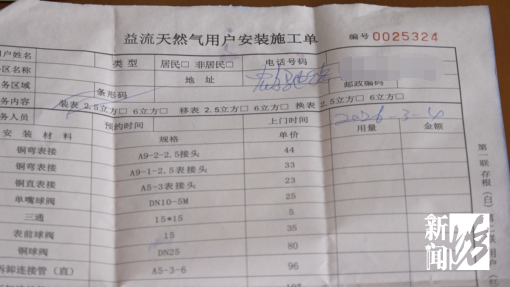 益流天然气用户安装施工单 编号 0025324
户姓名 类型 居民□ 非居民□ 电话号码
区名称 地址 邮政编码
务区域 条形码
务内容 装表 2.5立方□ 6立方□ 移表 2.5立方□ 6立方□ 换表 2.5立方□ 6立方□
务人员 预约时间 上门时间 2026-3-4
安装材料 规格 单价 用量 金额
铜弯表接 A9-2-2.5接头 44
铜弯表接 A9-1-2.5表接头 33
铜直表接 A5-3表接头 23
单嘴球阀 DN10-5M 25
三通 15*15 5
表前球阀 15 35
铜球阀 DN25 80
拆卸连接管(直) A5-3-6 96
第一联存根(白)
新闻